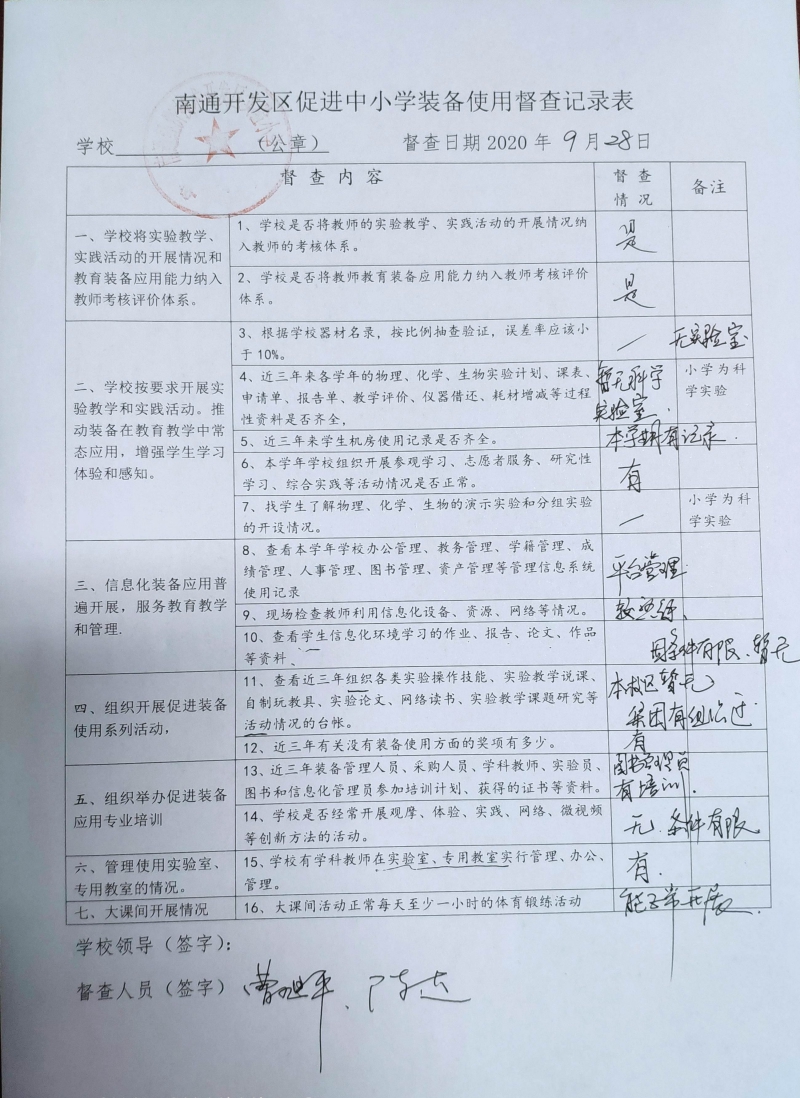 南通开发区促进中小学装备使用督查记录表
学校 （公章） 督查日期 2020 年 9 月 28 日
督 查 内 容
督 查
情 况
备注
一、学校将实验教学、
实践活动的开展情况和
教育装备应用能力纳入
教师考核评价体系。
1、学校是否将教师的实验教学、实践活动的开展情况纳
入教师的考核体系。
是
2、学校是否将教师教育装备应用能力纳入教师考核评价
体系。
是
二、学校按要求开展实
验教学和实践活动。推
动装备在教育教学中常
态应用，增强学生学习
体验和感知。
3、根据学校器材名录，按比例抽查验证，误差率应该小
于 10%。
/
无实验室
4、近三年来各学年的物理、化学、生物实验计划、课表、
申请单、报告单、教学评价、仪器借还、耗材增减等过程
性资料是否齐全，
暂无科学
实验室.
小学为科
学实验
5、近三年来学生机房使用记录是否齐全。
本学期有记录.
6、本学年学校组织开展参观学习、志愿者服务、研究性
学习、综合实践等活动情况是否正常。
有
7、找学生了解物理、化学、生物的演示实验和分组实验
的开设情况。
/
小学为科
学实验
三、信息化装备应用普
遍开展，服务教育教学
和管理.
8、查看本学年学校办公管理、教务管理、学籍管理、成
绩管理、人事管理、图书管理、资产管理等管理信息系统
使用记录
平台管理
9、现场检查教师利用信息化设备、资源、网络等情况。
10、查看学生信息化环境学习的作业、报告、论文、作品
等资料
因条件有限、暂无
四、组织开展促进装备
使用系列活动，
11、查看近三年组织各类实验操作技能、实验教学说课、
自制玩教具、实验论文、网络读书、实验教学课题研究等
活动情况的台帐。
本校区暂无
集团有组织过
12、近三年有关没有装备使用方面的奖项有多少。
有
五、组织举办促进装备
应用专业培训
13、近三年装备管理人员、采购人员、学科教师、实验员、
图书和信息化管理员参加培训计划、获得的证书等资料。
图书管理员
有培训.
14、学校是否经常开展观摩、体验、实践、网络、微视频
等创新方法的活动。
无.条件有限
六、管理使用实验室、
专用教室的情况。
15、学校有学科教师在实验室、专用教室实行管理、办公、
管理。
有.
七、大课间开展情况
16、大课间活动正常每天至少一小时的体育锻练活动
能正常开展.
学校领导（签字）：
督查人员（签字）